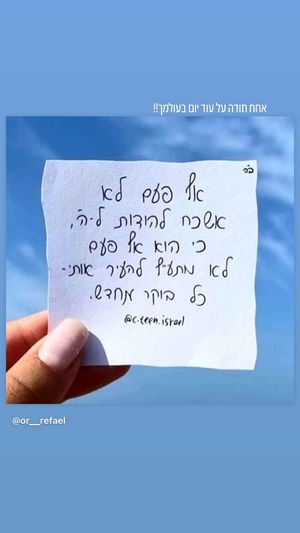 אחח תודה על עוד יום בעולמך!!
ב"ה
אף פעם לא
אשכח להודות ל-ה',
כי הוא אף פעם
לא מתעייף להעיר אותי-
כל בוקר מחדש.
@c.teen.israel
@or__refael